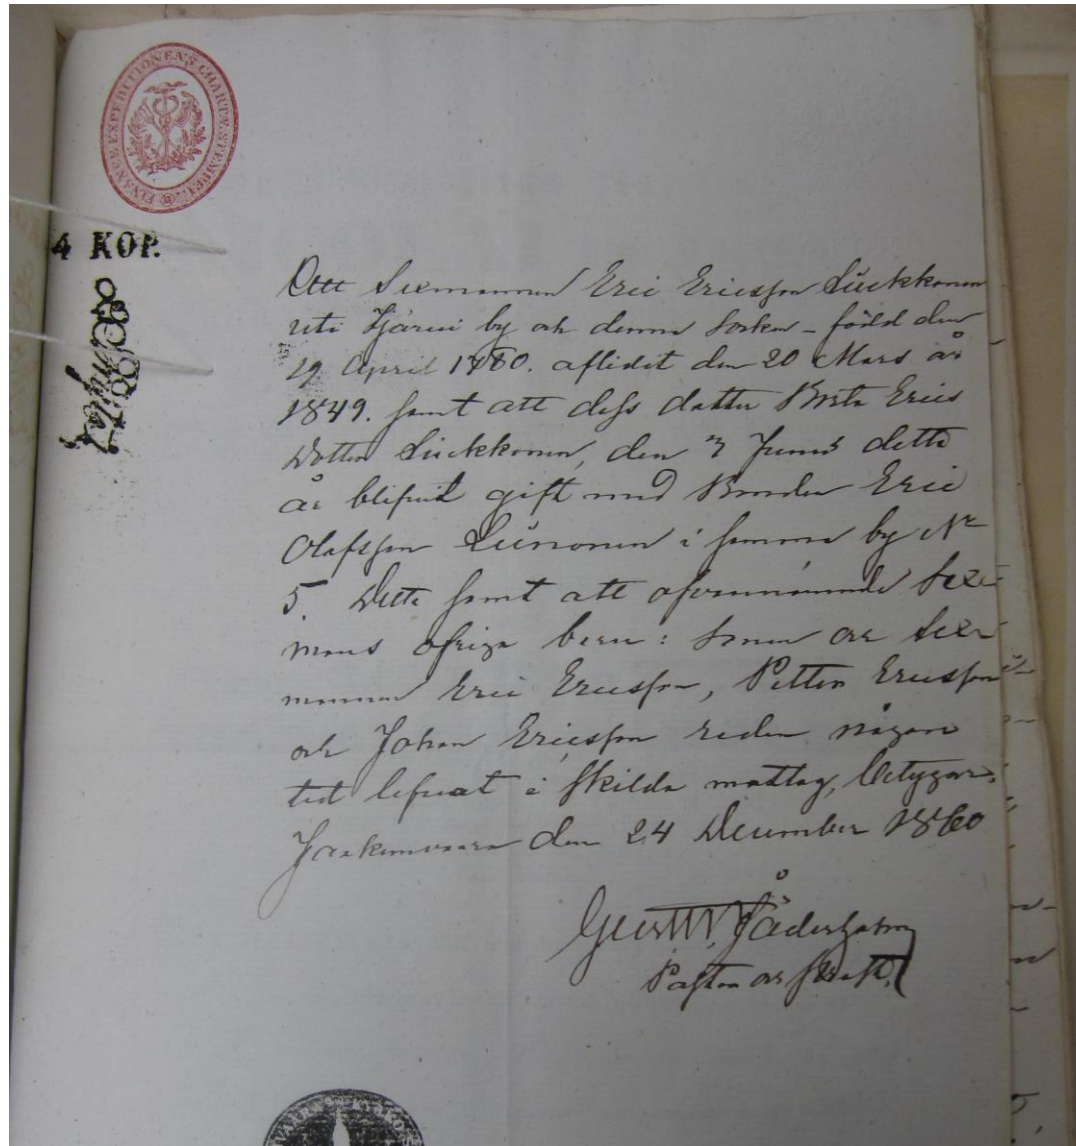 FINANCE EXPEDITIONENS CHARTÆ STEMPEL
4 KOP.
Att Sexmannen Eric Ericsson Lückkonen
uti Tjärvi by och denna socken - född den
19 April 1780. aflidit den 20 Mars år
1849. samt att dess dotter Brita Erics
Dotter Lückkonen, den 3 Junii detta
år blifvit gift med Bonden Eric
Olafsson Leinonen i samma by Nr
5. Detta samt att ofvannämnde Sex-
mans öfriga barn: sonen
mannen Eric Ericsson, Petter Ericsson
och Johan Ericsson redan någon
tid lefvat i skilda matlag, betygar.
Jaakimvaara den 24 December 1860
Gust. W.
Pastor